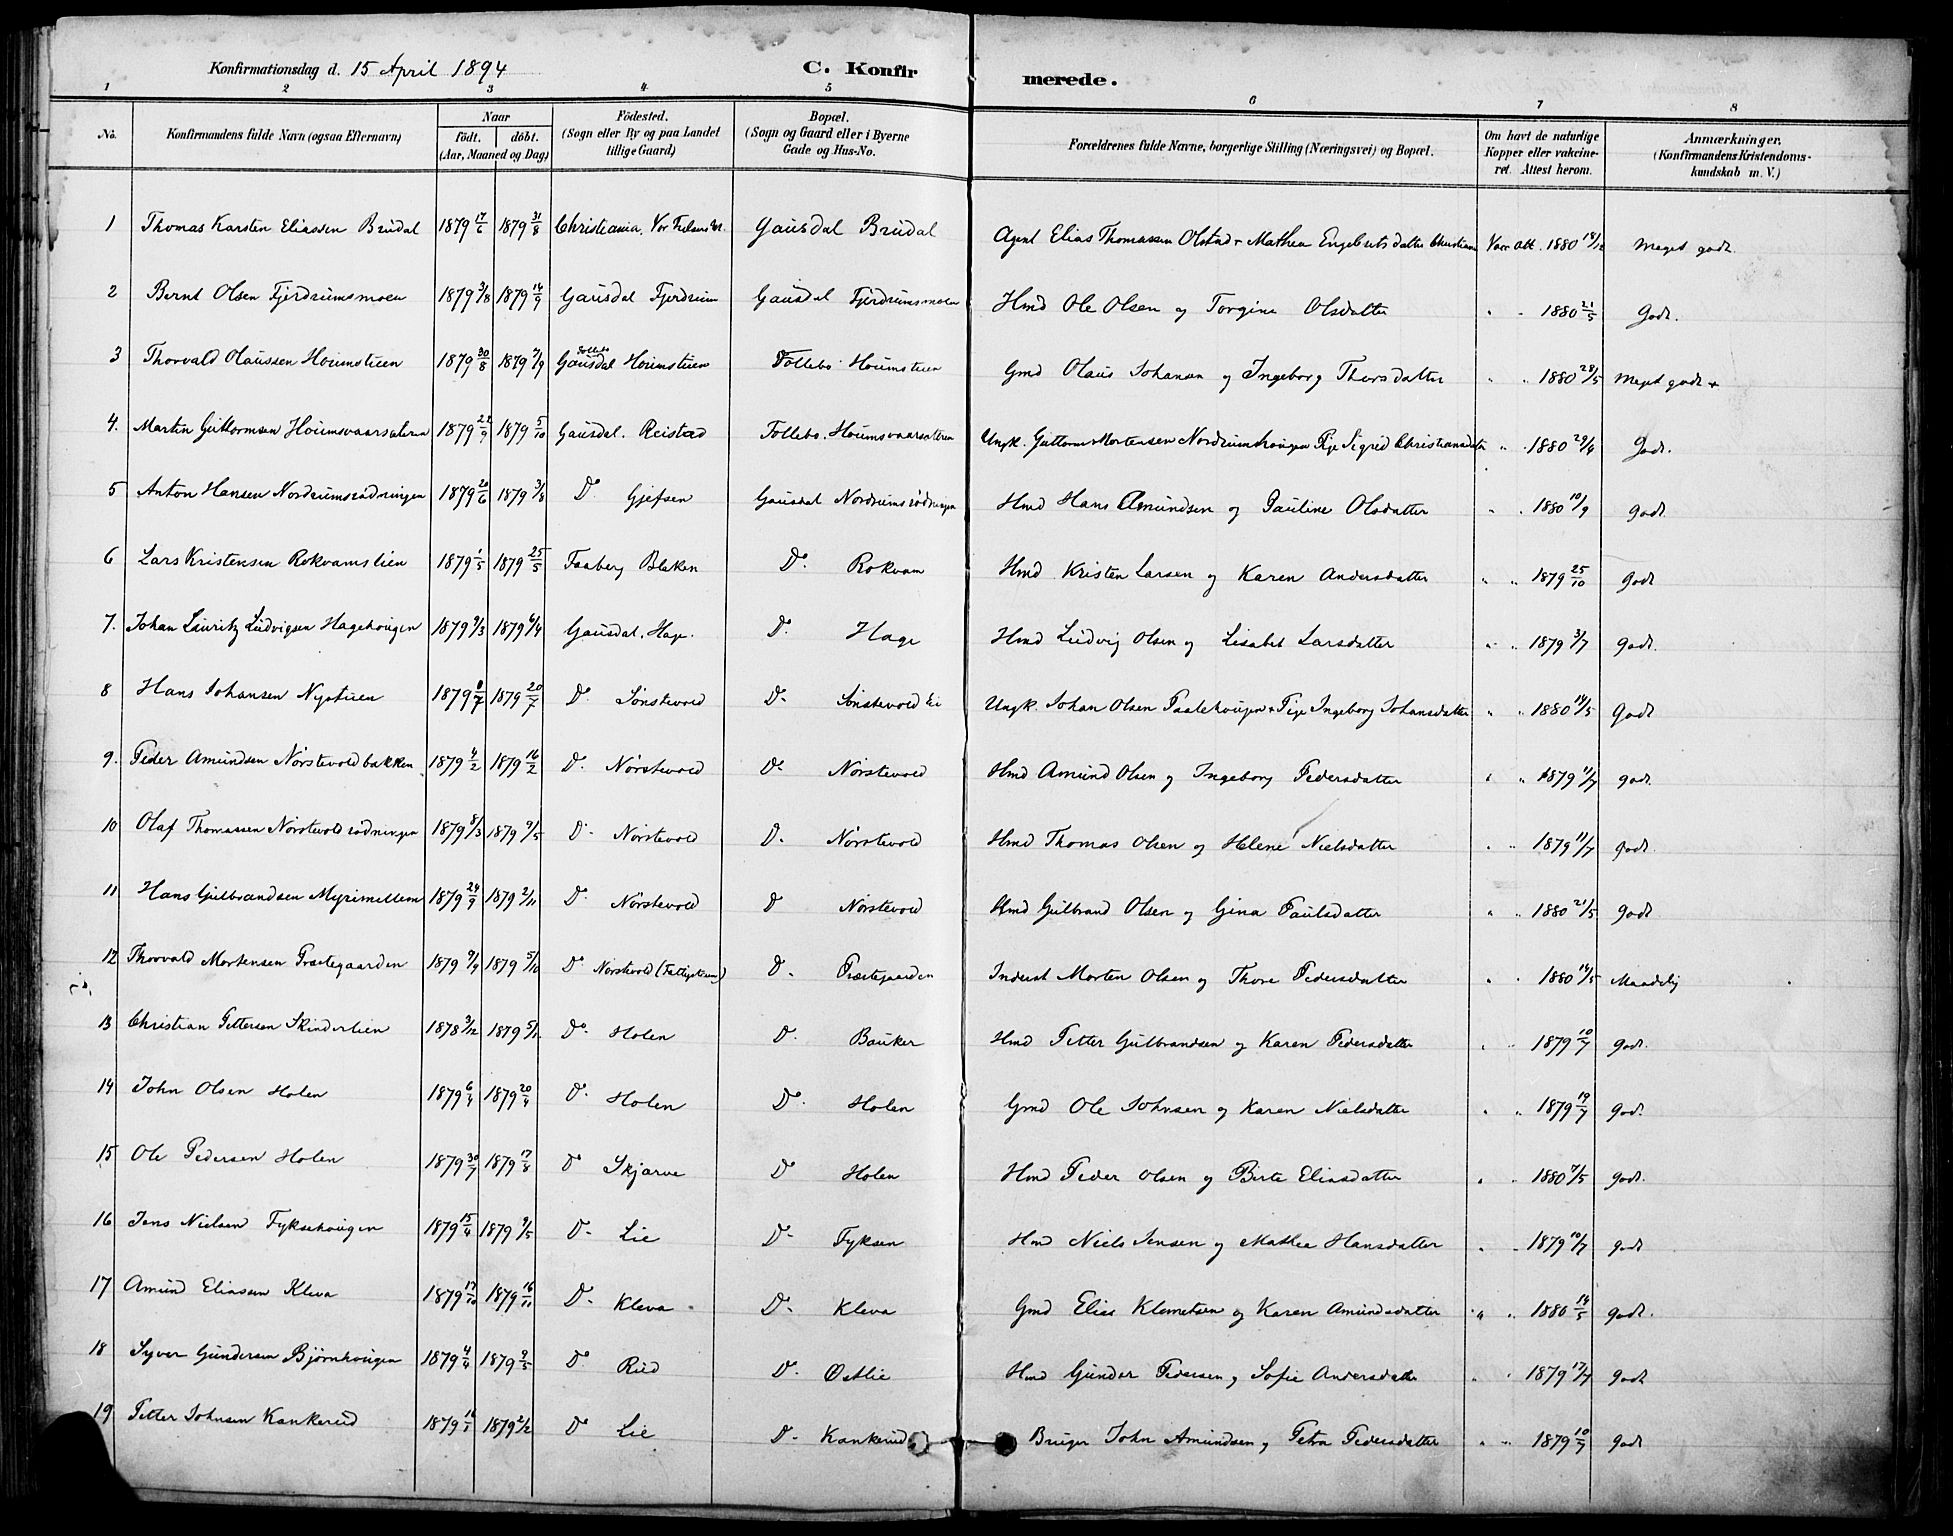 Konfirmationsdag d. 15 April 1894 C. Konfirmerede.
1 2 3 4 5 6 7 8
No. Konfirmandens fulde Navn (ogsaa Efternavn) Naar født. døbt. (Aar, Maaned og Dag) Fødested. (Sogn eller By og paa Landet tillige Gaard) Bopæl. (Sogn og Gaard eller i Byerne Gade og Hus-No. Forældrenes fulde Navne, borgerlige Stilling (Næringsvei) og Bopæl. Om havt de naturlige Kopper eller vakcineret. Attest herom. Anmærkninger. (Konfirmandens Kristendomskundskab m. V.)
1 Thomas Karsten Eliassen Brudal 1879 17/6 1879 31/8 Christiania, Vor Frelsers Gausdal Brudal Agent Elias Thomassen Olstad + Mathea Engebretsdatter Christiania Vacc. att. 1880 18/12 Meget godt.
2 Bernt Olsen Fjerdrumsmoen 1879 3/8 1879 14/9 Gausdal Fjerdrum Gausdal Fjerdrumsmoen Hmd Ole Olsen og Torgine Olsdatter " " 1880 21/5 Godt.
3 Thorvald Olaussen Houmstuen 1879 30/8 1879 /9 Follebo Gausdal Houmstuen Follebo Houmstuen Gmd Olaus Johansen og Ingeborg Thorsdatter " " 1880 28/5 Meget godt +
4. Martin Guttormsen Houmsvaarsæteren 1879 22/9 1879 5/10 Gausdal. Reistad Follebo. Houmsvaarsætren Ungk. Guttorm Mortensen Nordrumshougen Pige Sigrid Christiansdatter " " 1880 29/4 Godt.
5 Anton Hansen Nordrumsrødningen 1879 20/6 1879 3/8 Do Gjefsen Gausdal Nordrumsrødningen Hmd Hans Amundsen og Pauline Olsdatter " " 1880 10/9 Godt.
6 Lars Kristensen Rokvamslien 1879 1/5 1879 25/5 Faaberg Bleken Do. Rokvam Hmd Kristen Larsen og Karen Andersdatter " " 1879 25/10 Godt
7. Johan Lauritz Ludvigsen Hagehougen 1879 9/3 1879 6/4 Gausdal. Hage. Do. Hage Hmd Ludvig Olsen og Lisabet Larsdatter " " 1879 3/7 Godt.
8 Hans Johansen Nystuen 1879 /7 1879 20/7 Do Sønstevold Do Sønstevold Ungk. Johan Olsen Paalehougen + Pige Ingeborg Johansdatter " " 1880 14/5 Godt
9. Peder Amundsen Nørstevoldbakken 1879 4/2 1879 16/2 Do. Nørstevold Do Nørstevold Hmd Amund Olsen og Ingeborg Pedersdatter " " 1879 11/7 Godt.
10 Olaf Thomassen Nørstevoldrødningen 1879 8/3 1879 9/5 Do Nørstevold Do. Nørstevold Hmd Thomas Olsen og Helene Nielsdatter " " 1879 11/7 Godt.
11 Hans Gulbrandsen Myrimellem 1879 24/9 1879 2/11 Do. Nørstevold Do Nørstevold Hmd Gulbrand Olsen og Gina Paulsdatter " " 1880 21/5 Godt
12 Thorvald Mortensen Præstegaarden 1879 9/9 1879 5/10 Do Nørstevold (Fattigstuen) Do. Præstegaarden Inderst Morten Olsen og Thore Pedersdatter " " 1880 14/5 Maadelig
13 Christian Pettersen Skinderlien 1878 3/12 1879 5/1 Do. Holen Do. Bauker Hmd Petter Gulbrandsen og Karen Pedersdatter " " 1879 10/7 Godt.
14 John Olsen Holen 1879 6/4 1879 20/4 Do. Holen Do. Holen Gmd Ole Johnsen og Karen Nielsdatter " " 1879 19/7 God.
15 Ole Pedersen Holen 1879 30/7 1879 17/8 Do Skjarve Do Holen Hmd Peder Olsen og Berte Eliasdatter " " 1880 7/5 Godt.
16 Jens Nielsen Fyksehougen 1879 15/4 1879 9/5 Do Lie Do Fyksen Hmd Niels Jensen og Mathea Hansdatter " " 1879 10/7 Godt
17 Amund Eliassen Kleva 1879 17/10 1879 16/11 Do Kleva Do Kleva Gmd Elias Klemetsen og Karen Amundsdatter " " 1880 14/5 Godt.
18 Syver Gundersen Bjørnhougen 1879 4/4 1879 9/5 Do Rud Do. Østlie Hmd Gunder Pedersen og Sofie Andersdatter " " 1879 17/7 Godt
19 Petter Johnsen Kankerud 1879 1879 2/2 Do Lie Do Kankerud Bruger John Amundsen og Petra Pedersdatter " " 1879 10/7 Godt